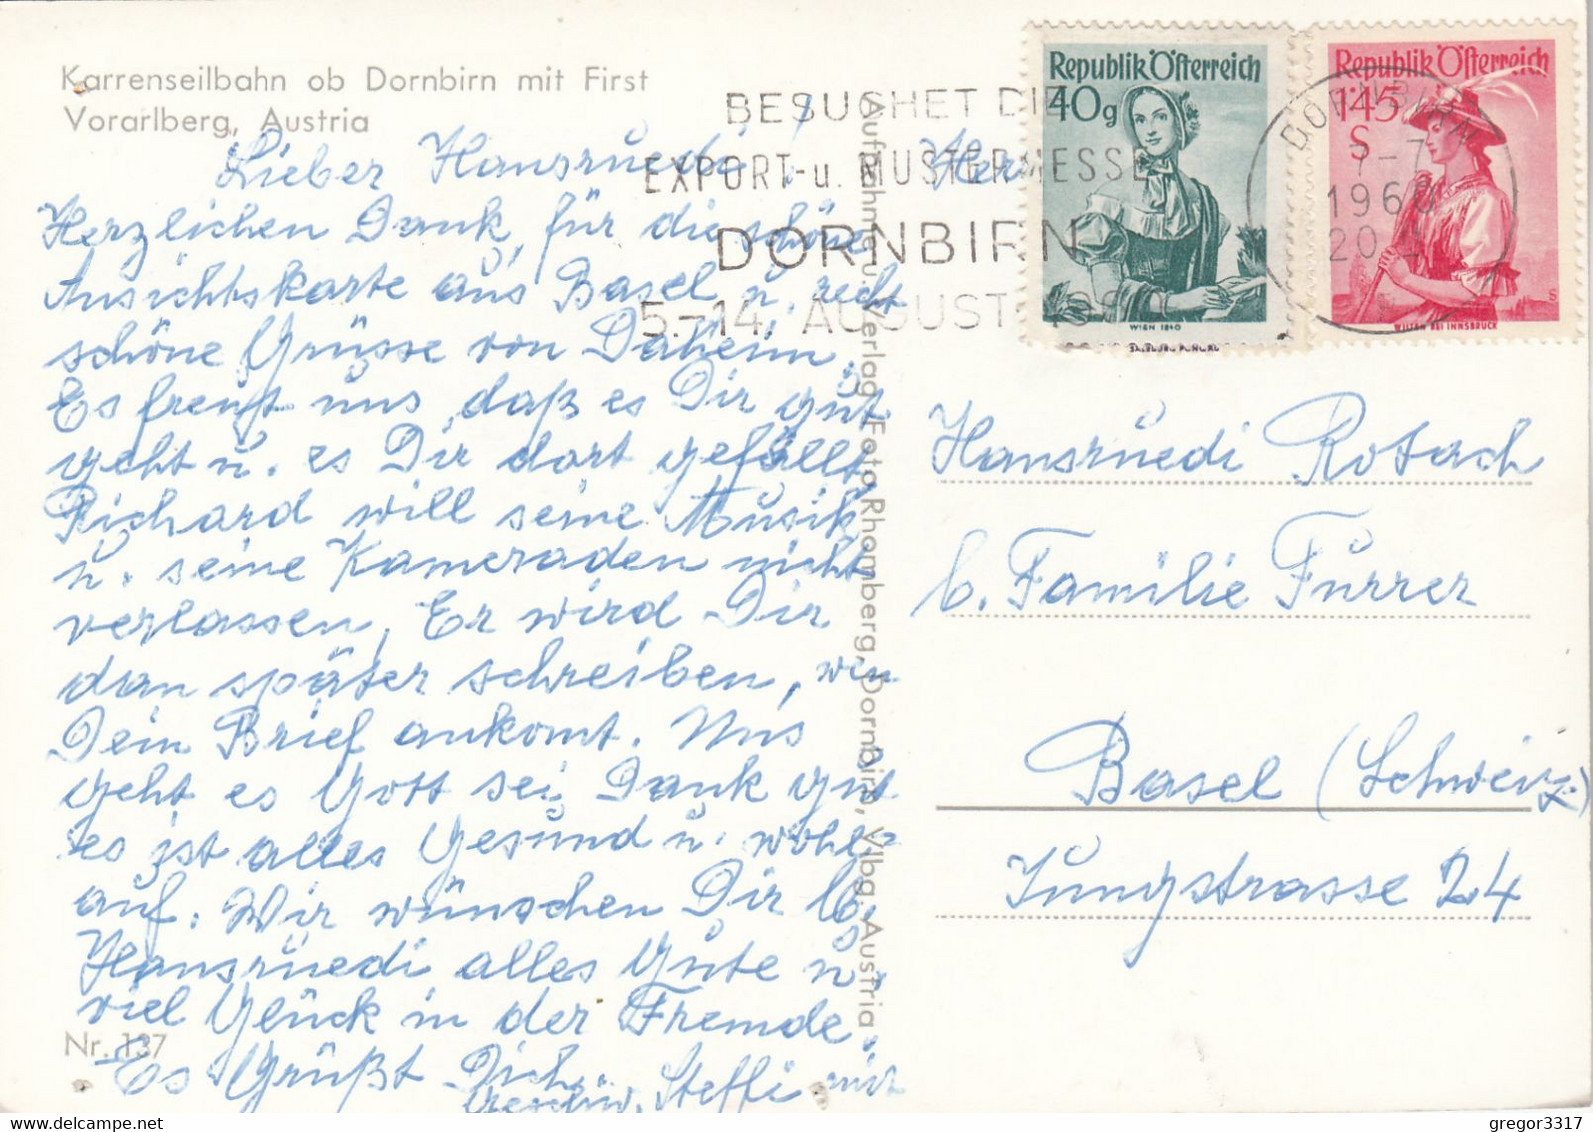 Karrenseilbahn ob Dornbirn mit First
Vorarlberg, Austria
Lieber Hansruedi! Her
Herzlichen Dank, für die schöne
Ansichtskarte aus Basel u. recht
schöne Grüsse von Daheim.
Es freut uns, daß es Dir gut
geht u. es Dir dort gefällt
Richard will seine Musik
u. seine Kameraden nicht
verlassen, Er wird Dir
dan später schreiben, wen
Dein Brief ankomt. Uns
geht es Gott sei Dank gut
es ist alles Gesund u. wohl-
auf. Wir wünschen Dir lb.
Hansruedi alles Gute u.
viel Glück in der Fremde.
Es Grüßt Dich
Geschw. Steffi mit
Nr. 137
Aufnahme u. Verlag Foto Rhomberg, Dornbirn, Vlbg. Austria
BESUCHET DIE
EXPORT-u. MUSTERMESSE
DORNBIRN
5.-14. AUGUST 1960
Republik Österreich
40g
WIEN 1840
Republik Österreich
1·45
S
WILTEN BEI INNSBRUCK
DORNBIRN
1960
Hansruedi Rotach
b. Familie Furrer
Basel (Schweiz)
Jungstrasse 24